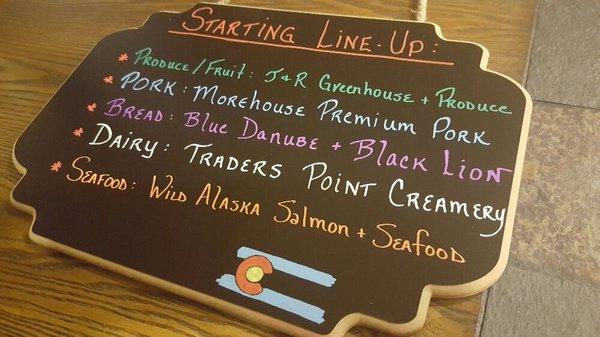 Starting Line-Up:
* Produce/Fruit: J&R Greenhouse + Produce
* Pork: Morehouse Premium Pork
* Bread: Blue Danube + Black Lion
* Dairy: Traders Point Creamery
* Seafood: Wild Alaska Salmon + Seafood